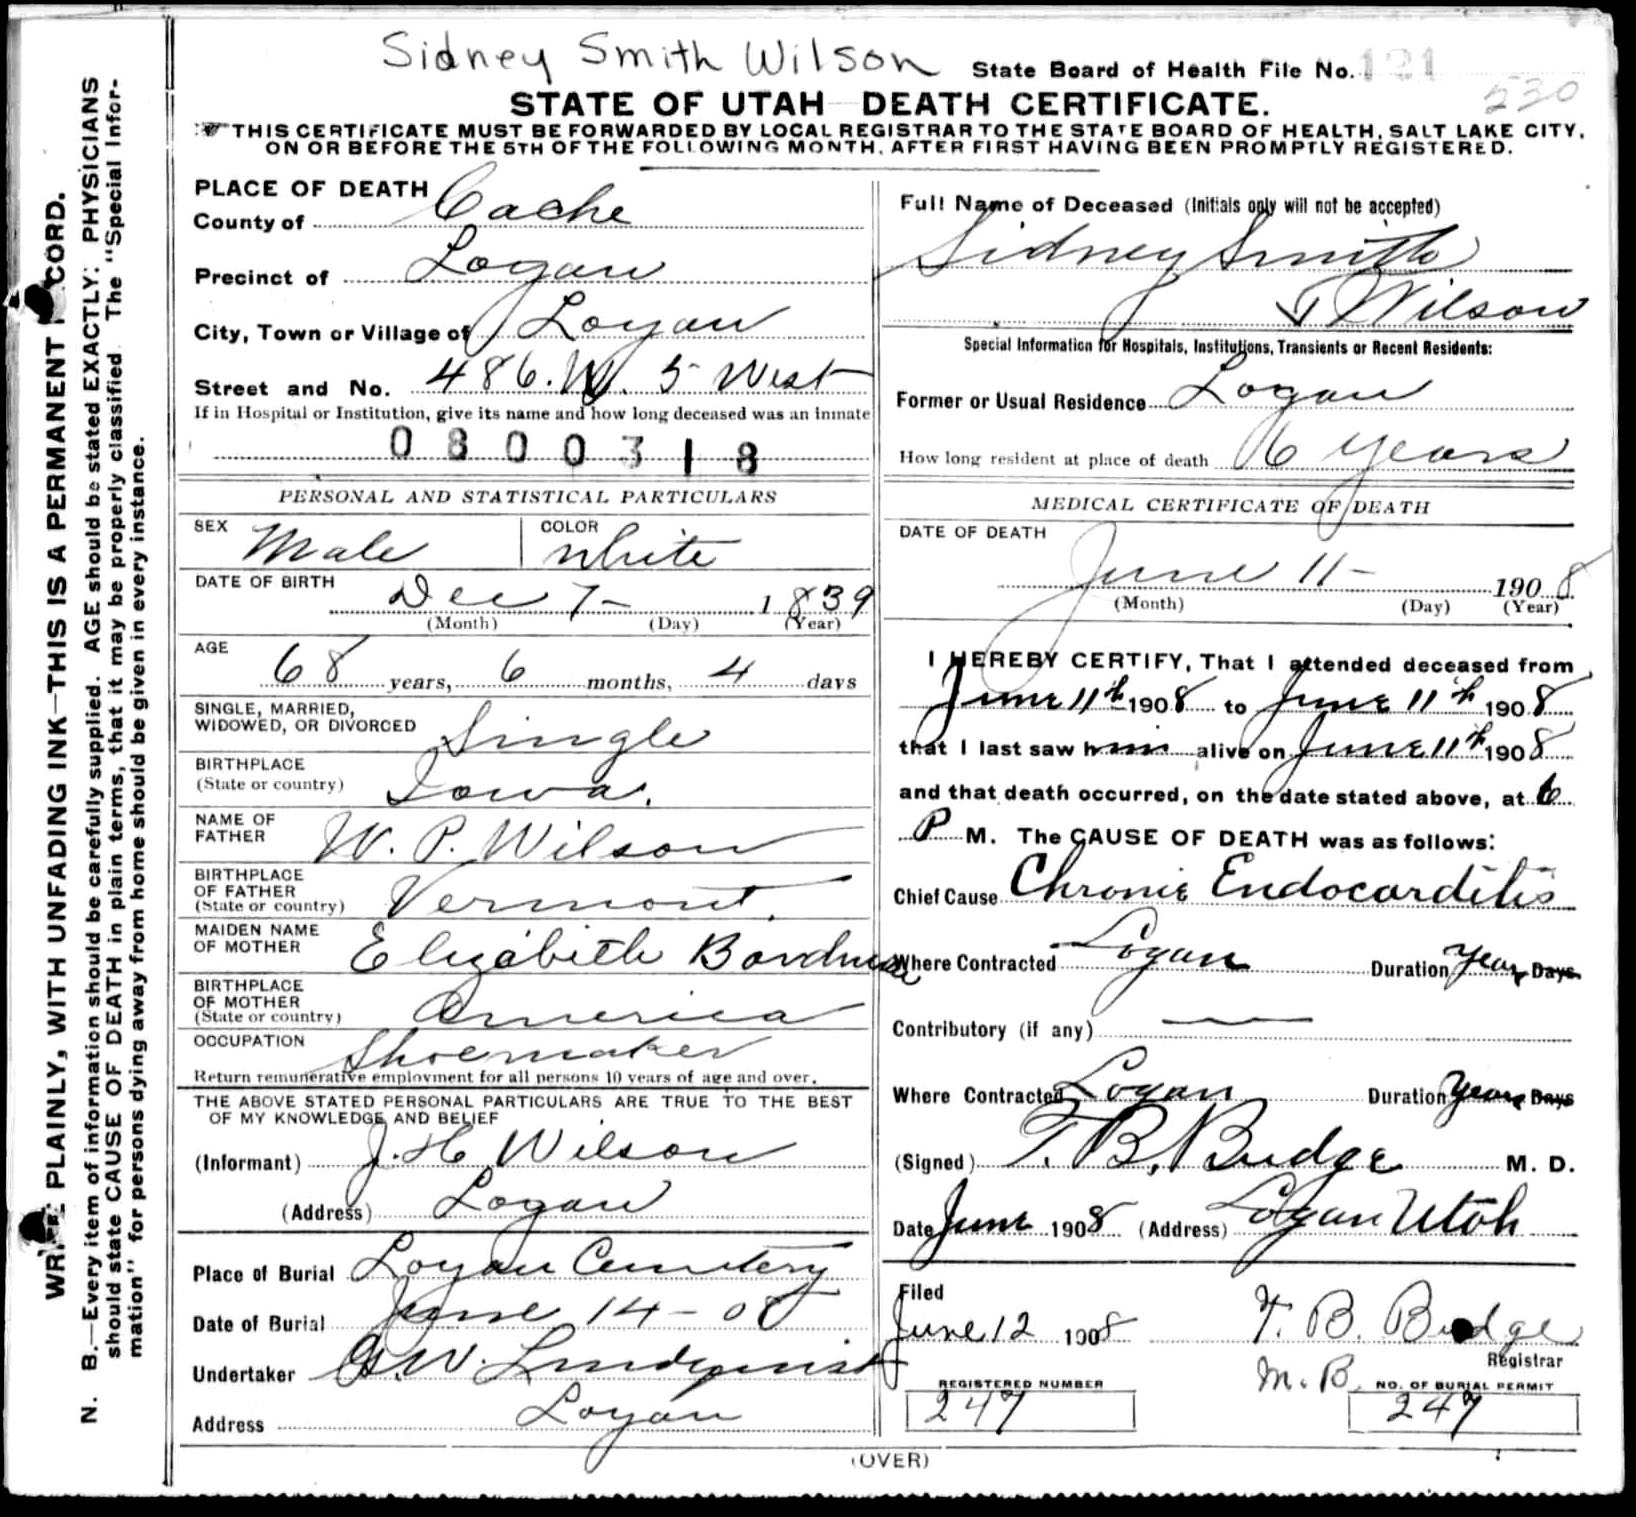 Sidney Smith Wilson
State Board of Health File No. 121
530
STATE OF UTAH DEATH CERTIFICATE.
THIS CERTIFICATE MUST BE FORWARDED BY LOCAL REGISTRAR TO THE STATE BOARD OF HEALTH, SALT LAKE CITY,
ON OR BEFORE THE 5TH OF THE FOLLOWING MONTH, AFTER FIRST HAVING BEEN PROMPTLY REGISTERED.
WRITE PLAINLY, WITH UNFADING INK—THIS IS A PERMANENT RECORD.
N. B.—Every item of information should be carefully supplied. AGE should be stated EXACTLY. PHYSICIANS
should state CAUSE OF DEATH in plain terms, that it may be properly classified. The "Special Infor-
mation" for persons dying away from home should be given in every instance.
PLACE OF DEATH
County of Cache
Precinct of Logan
City, Town or Village of Logan
Street and No. 486. W. 5 West
If in Hospital or Institution, give its name and how long deceased was an inmate
0800318
PERSONAL AND STATISTICAL PARTICULARS
SEX Male COLOR White
DATE OF BIRTH Dec 7- 1839
(Month) (Day) (Year)
AGE 68 years, 6 months, 4 days
SINGLE, MARRIED,
WIDOWED, OR DIVORCED Single
BIRTHPLACE
(State or country) Iowa.
NAME OF
FATHER W. P. Wilson
BIRTHPLACE
OF FATHER
(State or country) Vermont.
MAIDEN NAME
OF MOTHER Elizabeth
BIRTHPLACE
OF MOTHER
(State or country) America
OCCUPATION Shoemaker
Return remunerative employment for all persons 10 years of age and over.
THE ABOVE STATED PERSONAL PARTICULARS ARE TRUE TO THE BEST
OF MY KNOWLEDGE AND BELIEF
(Informant) J. H. Wilson
(Address) Logan
Place of Burial Logan Cemetery
Date of Burial June 14-08
Undertaker G.W. Lindquist
Address Logan
Full Name of Deceased (Initials only will not be accepted)
Sidney Smith
Wilson
Special Information for Hospitals, Institutions, Transients or Recent Residents:
Former or Usual Residence Logan
How long resident at place of death 16 years
MEDICAL CERTIFICATE OF DEATH
DATE OF DEATH
June 11- 1908
(Month) (Day) (Year)
I HEREBY CERTIFY, That I attended deceased from
June 11th 1908 to June 11th 1908
that I last saw him alive on June 11th 1908
and that death occurred, on the date stated above, at 6
P M. The CAUSE OF DEATH was as follows:
Chief Cause Chronic Endocarditis
Where Contracted Logan Duration Years Days
Contributory (if any) —
Where Contracted Logan Duration Years Days
(Signed) T. B. Budge M. D.
Date June 1908 (Address) Logan Utah
Filed
June 12 1908 T. B. Budge
Registrar
M. B.
REGISTERED NUMBER
247
NO. OF BURIAL PERMIT
247
(OVER)